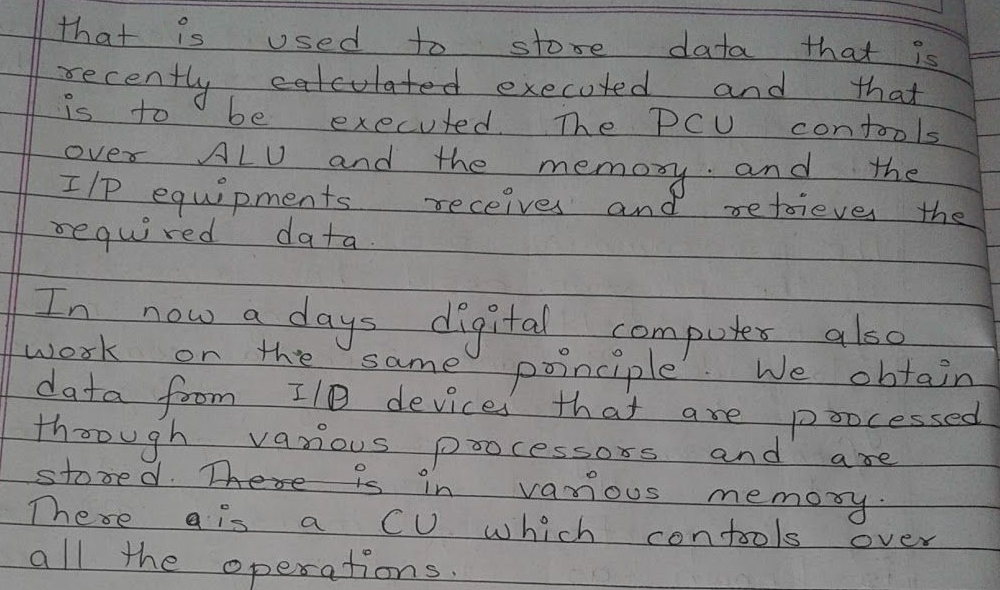 that is used to store data that is
recently calculated executed and that
is to be executed. The PCU controls
over ALU and the memory. and the
I/P equipments receives and retrieves the
required data.
In now a days digital computer also
work on the same principle. We obtain
data from I/O devices that are processed
through various processors and are
stored. There is in various memory.
There a is a CU which controls over
all the operations.